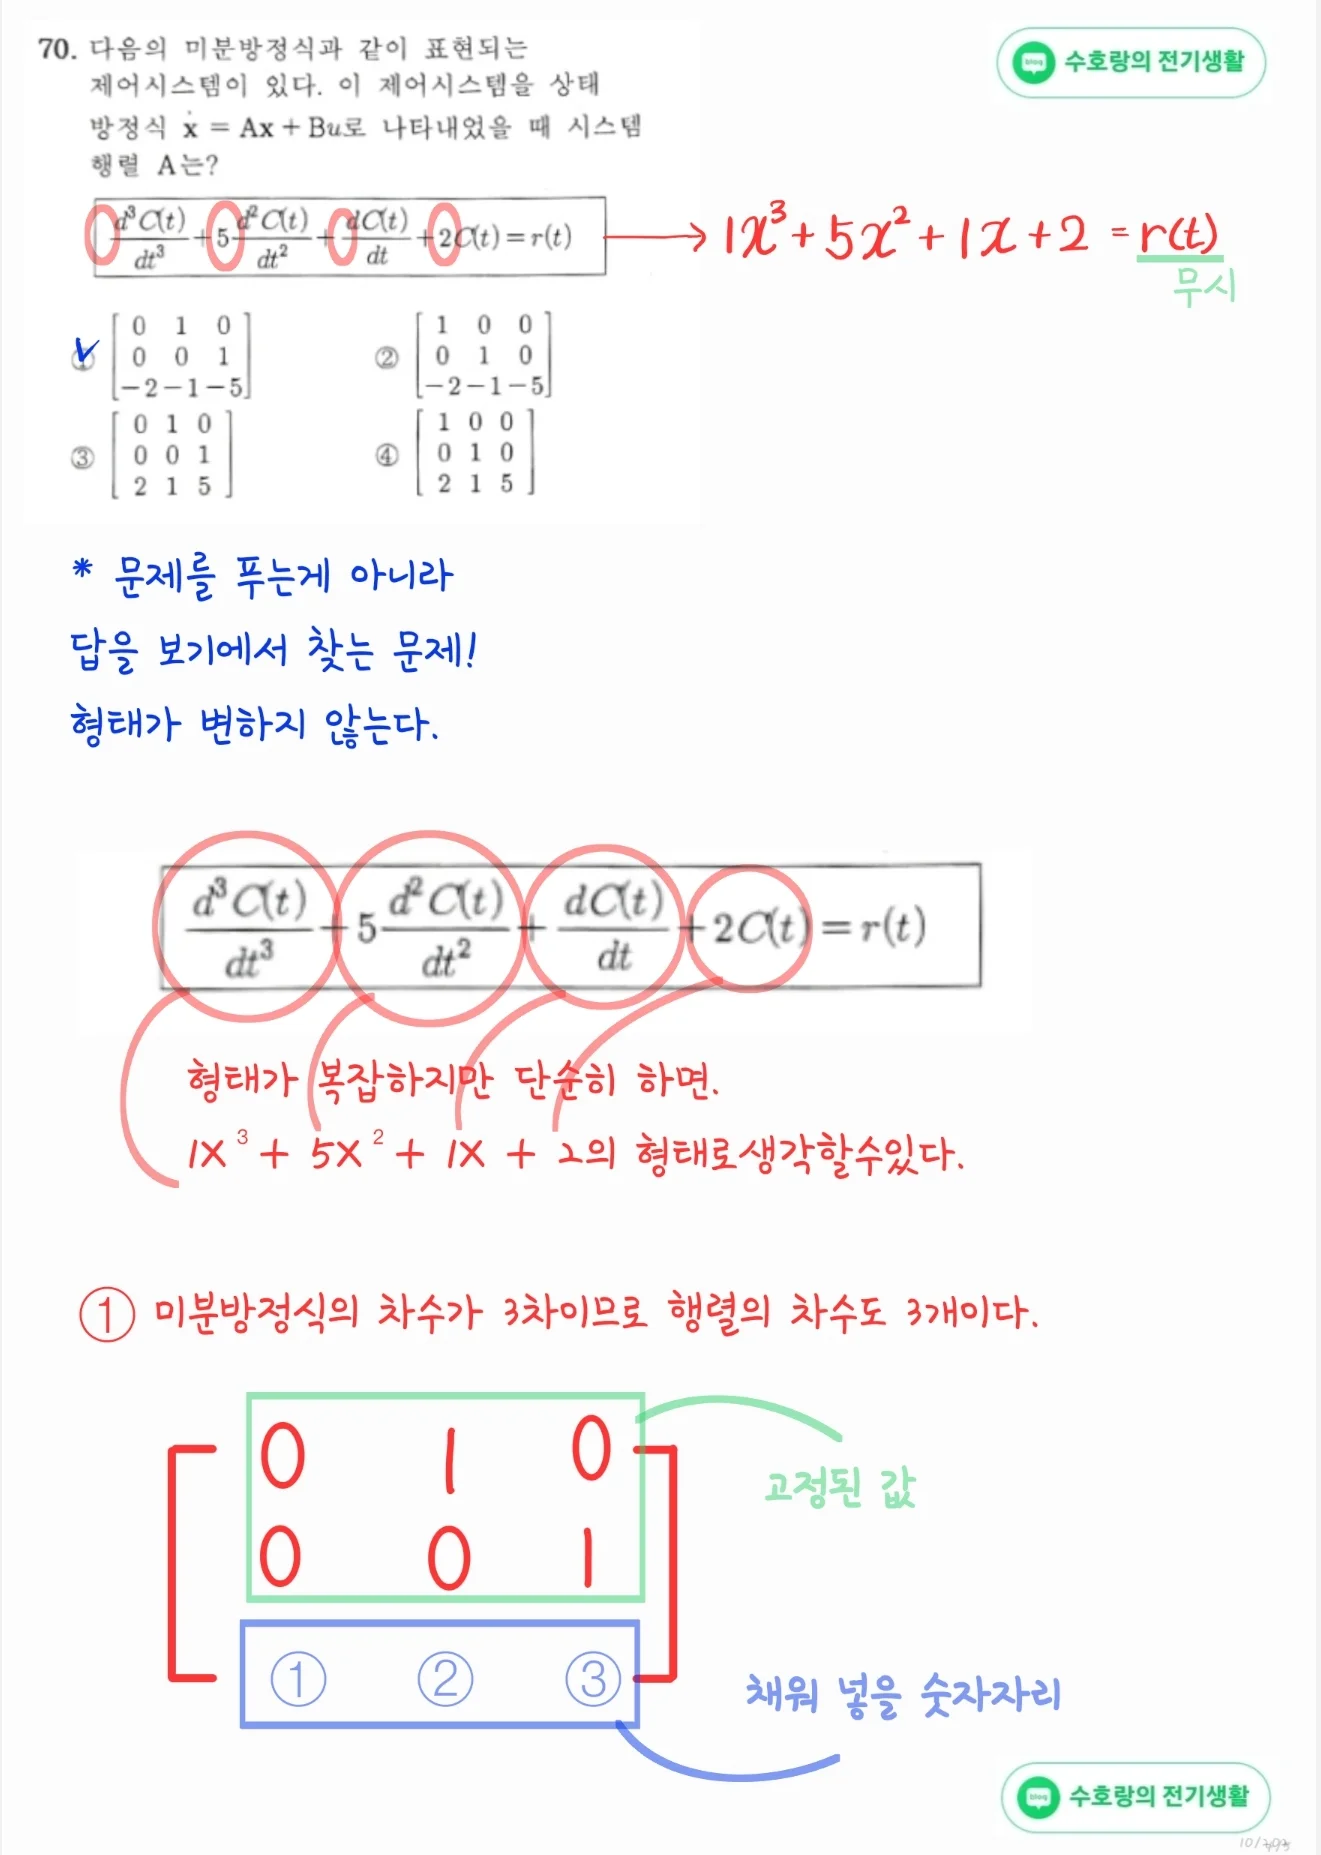 70. 다음의 미분방정식과 같이 표현되는
제어시스템이 있다. 이 제어시스템을 상태
방정식 ẋ = Ax + Bu로 나타내었을 때 시스템
행렬 A는?
수호랑의 전기생활
d³C(t)/dt³ + 5 d²C(t)/dt² + dC(t)/dt + 2C(t) = r(t)
1x³ + 5x² + 1x + 2 = r(t)
무시
① [0 1 0
0 0 1
-2 -1 -5]
② [1 0 0
0 1 0
-2 -1 -5]
③ [0 1 0
0 0 1
2 1 5]
④ [1 0 0
0 1 0
2 1 5]
* 문제를 푸는게 아니라
답을 보기에서 찾는 문제!
형태가 변하지 않는다.
d³C(t)/dt³ + 5 d²C(t)/dt² + dC(t)/dt + 2C(t) = r(t)
형태가 복잡하지만 단순히 하면.
1X³ + 5X² + 1X + 2의 형태로생각할수있다.
① 미분방정식의 차수가 3차이므로 행렬의 차수도 3개이다.
0 1 0
고정된 값
0 0 1
① ② ③
채워 넣을 숫자자리
수호랑의 전기생활